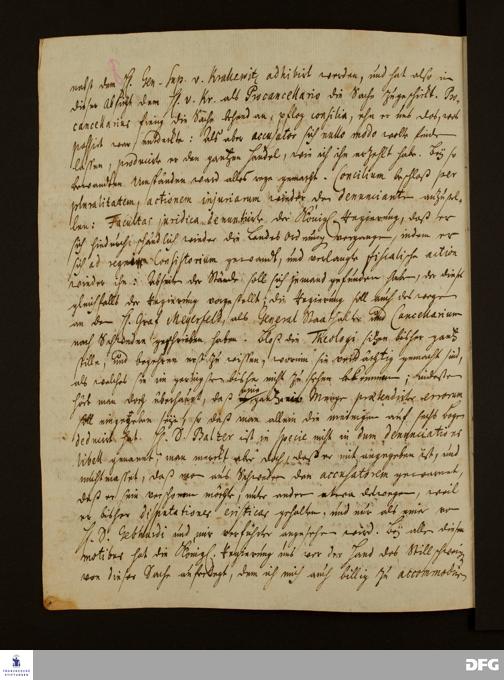 nebst dem H. Gen. Sup. v. Krakewitz adhibirt worden, und hat also in
dieser Absicht dem H. v. Kr. als Procancellario die Sache zugeschickt. Pro-
cancellarius fieng die Sache schon an, pflog consilia, ehe er uns das, was
passirt war entdeckte: Als aber accusator sich nullo modo wolte finden
lassen, producirte er den gantzen Handel, wie ich ihn erzehlt habe. Bey so
bewandten Umständen ward alles rege gemacht. Concilium beschloß per
pluralitatem, actionem injuriarum wieder den denuncianten anzustel-
len: Facultas juridica denuncirte der Königl. Regierung, daß er
sich hiedurch schändlich wieder die Landes Ordnung vergangen, indem er
sich ad Consistorium gewandt, und verlangte fiscalische action
wieder ihn: Abseiten der Stände soll sich jemand gefunden haben, der dieses
gleichfalls der Regierung vorgestellt; die Regierung soll auch deswegen
an den H. Graf Meyerfeld, als General Staathalter und Cancellarium
nach Schweden geschrieben haben. Bloß die Theologi sitzen bisher gantz
stille, und begehren erst zu wissen, warum sie verdächtig gemacht sind,
als welches sie im geringsten bisher nicht zu sehen bekommen; Indessen
hört man doch überhaupt, daß eine gantze Menge praetendirter errorum
soll eingegeben seyn, so daß man allein die meinigen auf sechs Bogen
deduciret hat. H. D. Balzer ist in specie nicht in dem denunciations
libell genannt, man merckt aber doch, daß er mit angegeben ist, und
muthmasset, daß man aus Schweden den accusatorem gewarnet,
daß er sein vorsehen möchte, unter andern etwan deswegen, weil
er bisher disputationes criticas gehalten, und nun als einer von
H. D. Gebhardi und mir verführter angesehen wird. Bey allen diesen
motibus hat die Königl. Regierung uns vor der Hand das Stillschweigen
von dieser Sache auferlegt, dem ich mich auch billig zu accommodiren
FRANCKESCHE STIFTUNGEN
DFG